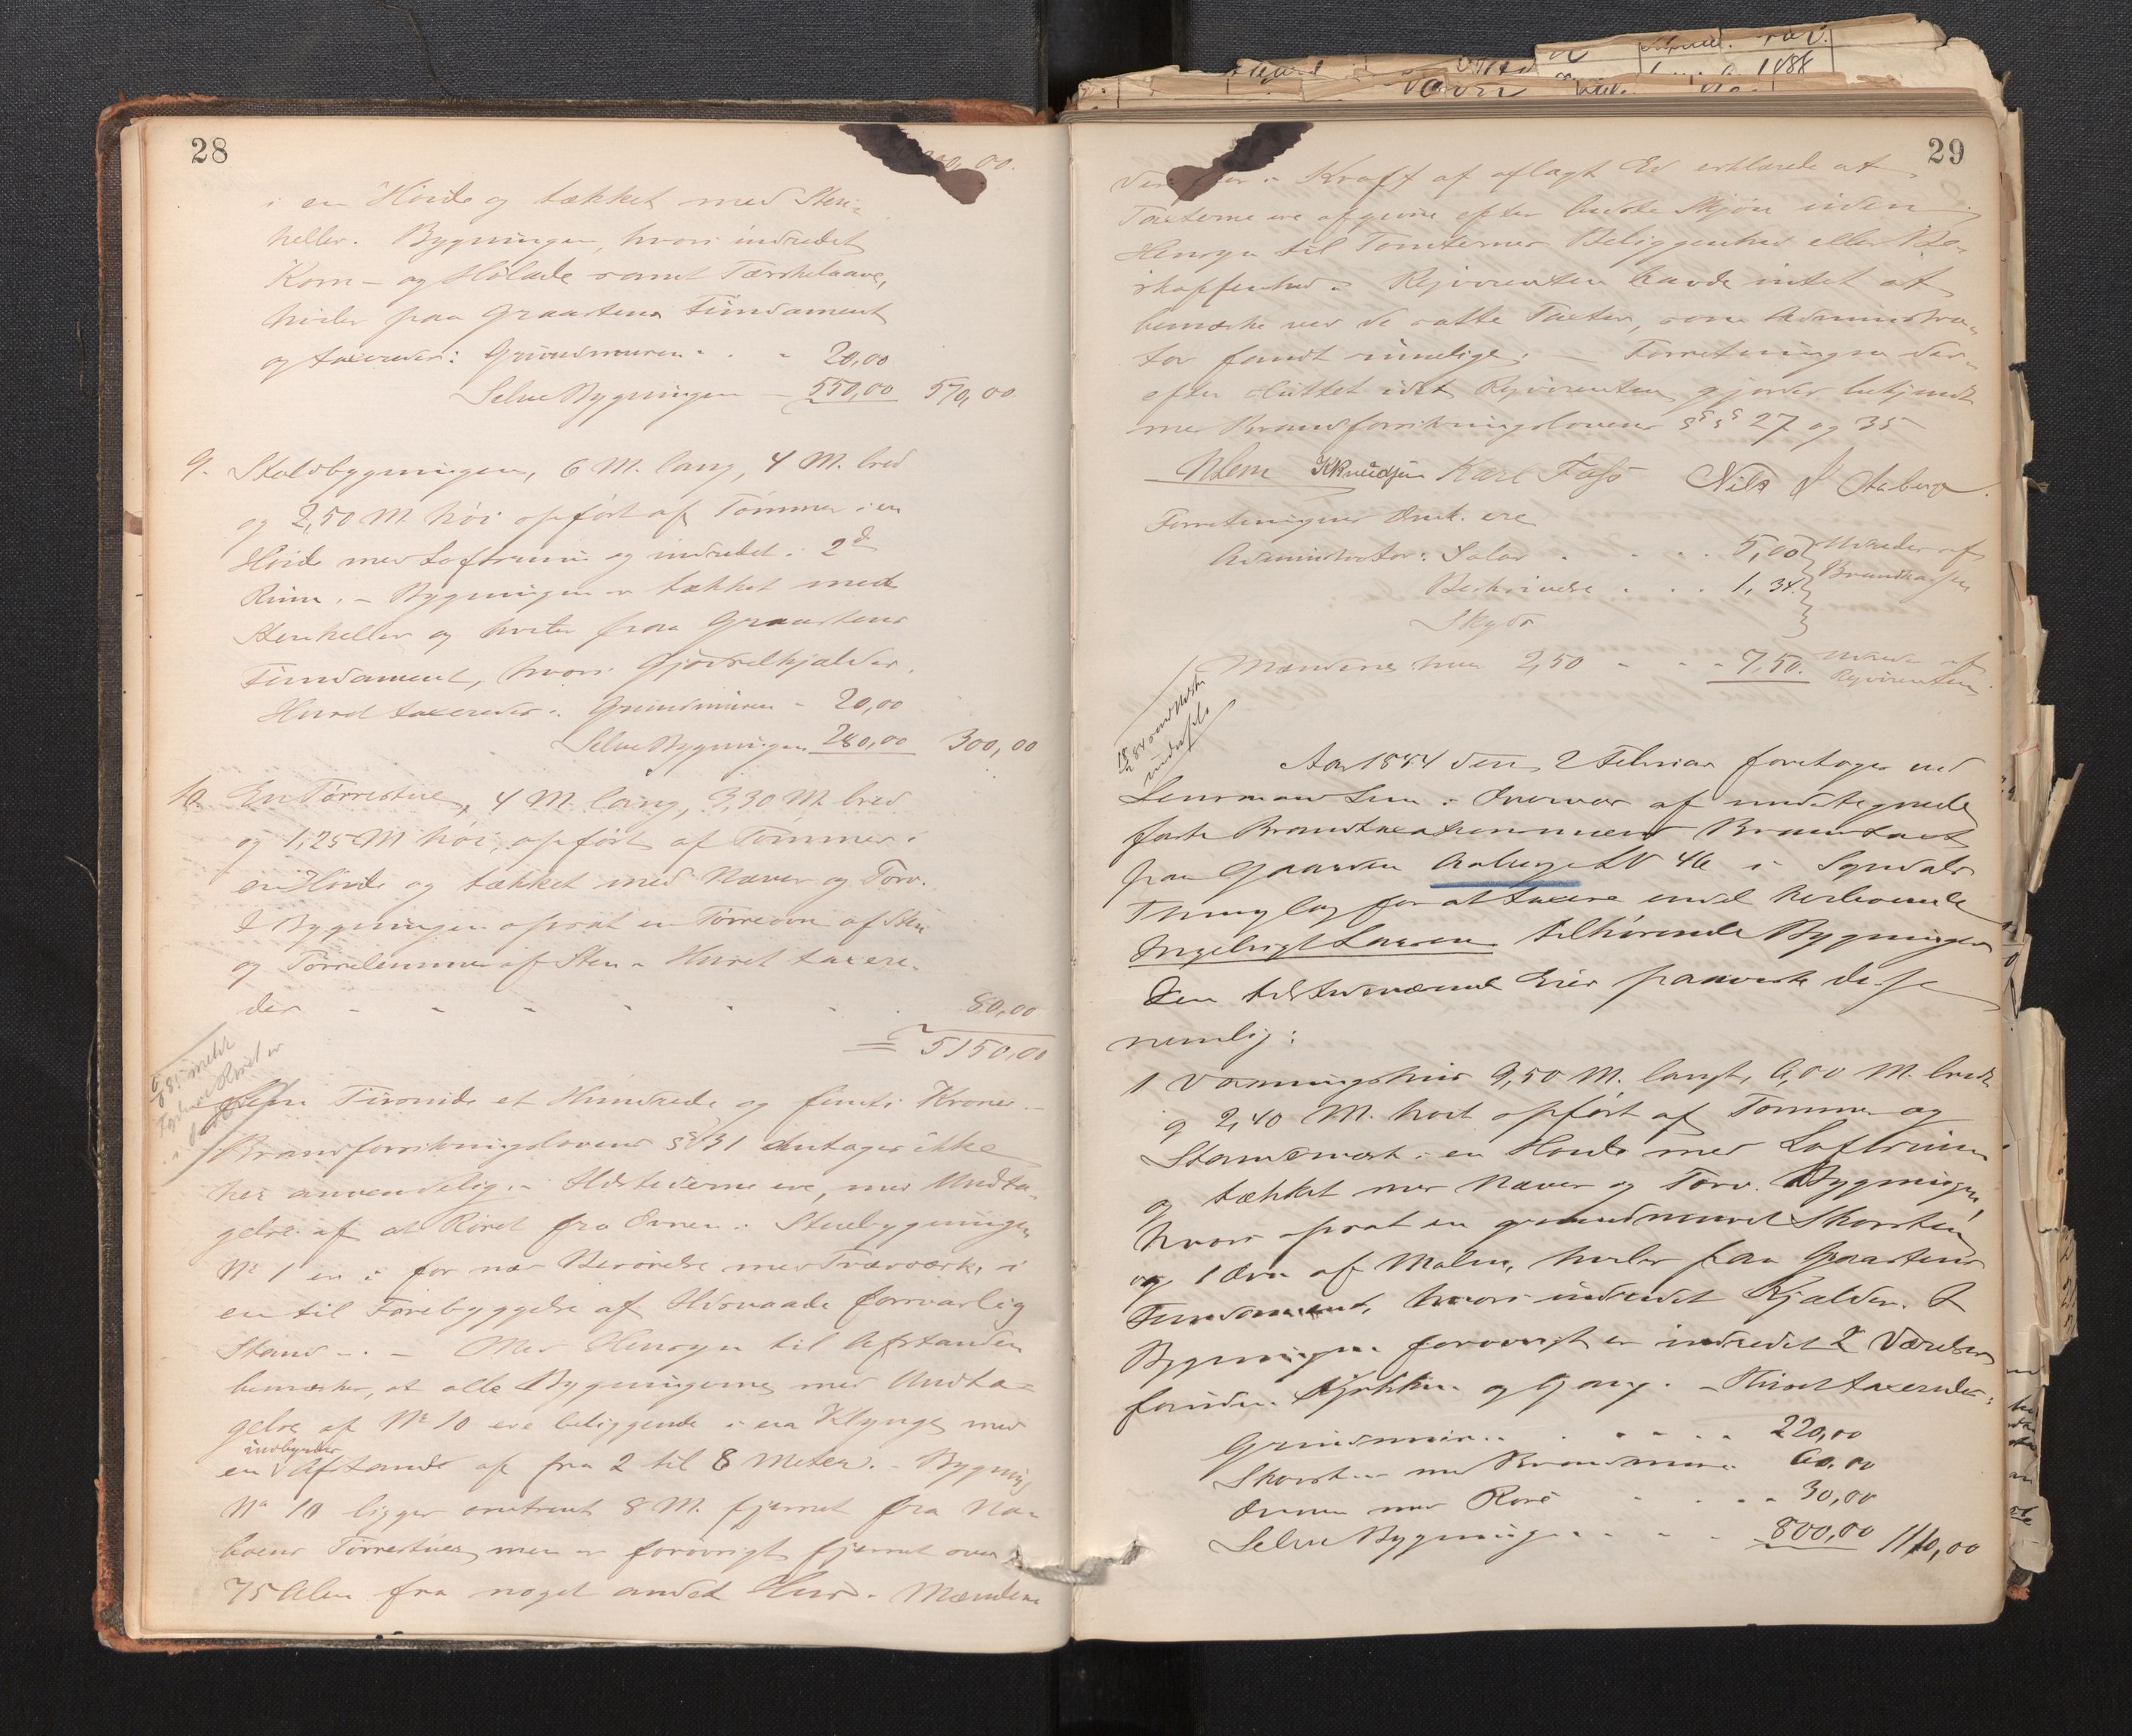 28
00,00.
i en Høide og tækket med Sten-
heller. Bygningen, hvori indredet
Korn- og Hølade samt Tærskelaave,
hviler paa Graastens Fundament
og taxeredes: Grundmuren - . - 20,00
Selve Bygningen - 550,00 570,00
9. Staldbygningen, 6 M. lang, 4 M. bred
og 2,50 M. høi opført af Tømmer i en
Høide med Loftsrum og indredet i 2de
Rum. - Bygningen er tækket med
Stenheller og hviler paa Graastens
Fundament, hvori Gjødselkjælder.
Huset taxeredes: Grundmuren - 20,00
Selve Bygningen 280,00 300,00
10. En Tørrestue, 4 M. lang, 3,30 M. bred
og 1,25 M høi, opført af Tømmer i
en Høide og tækket med Næver og Torv.
I Bygningen opsat en Tørreovn af Sten
og Tørrelemmer af Sten. Huset taxere-
des - - - - - - 80,00
5150,00
Fem Tusinde et Hundrede og femti Kroner. -
Brandforsikringslovens § 31 antages ikke
her anvendelig. - Ildstederne ere, med Undta-
gelse af at Røret fra Ovnen i Stuebygningen
No 1 er i for nær Berørelse med Træværk, i
en til Forebyggelse af Ildsvaade forsvarlig
Stand -. - Med Hensyn til Afstanden
bemærkes, at alle Bygningerne med Undta-
gelse af No 10 ere beliggende i en Klynge med
indbyrdes
en Afstand af fra 2 til 8 Meter. - Bygning
No 10 ligger omtrent 8 M. fjernet fra Na-
boens Tørrestue, men er forøvrigt fjernet over
75 Alen fra noget andet Hus. Mændene
29
i Kraft af aflagt Ed erklærede at
Taxterne ere afgivne efter bedste Skjøn uden
Hensyn til Tomternes Beliggenhed eller Be-
skaffenhed. Rekvirenten havde intet at
bemærke ved de satte Taxter, som Administra-
tor fandt rimelige. - Forretningen der-
efter sluttet idet Rekvirenten gjordes bekjendt
med Brandforsikringslovens §§ 27 og 35
KKnudsen Karl Nils Aaberge.
Forretningens Omk. ere
Administrator: Salær . . . . 5,00 Udredes af
Beskrivelse . . . 1,34 Brandkassen
Skyds
Mændene hver 2,50 - - - 7,50. Udredes af
Rekvirenten.
Aar 1884 den 2 Februar foretoges ved
Lensmand Lem i Overvær af undertegnede
faste Brandtaxationsmænd Brandtaxt
paa Gaarden Aaberge LN 46 i Sogndals
Thinglag for at taxere endel herboende
Ingebrigt Larsen tilhørende Bygninger
Den tilstedeværende Eier paaviste disse
nemlig:
1 Vaaningshus 9,50 M. langt, 6,00 M. bredt
og 2,40 M. høit opført af Tømmer og
Stavværk i en Høide med Loftsrum
og tækket med Næver og Torv. Bygningen,
hvori opsat en grundmuret Skorsten
og 1 Ovn af Malm, hviler paa Graastens
Fundament, hvori indredet Kjælder. I
Bygningen forøvrigt er indredet 2 Værelser
foruden Kjøkken og Gang. - Huset taxeredes:
Grundmuren . . - - - 220,00
Skorsten med Brandmure 60,00
Ovnen med Rør - - - 30,00
Selve Bygningen - - - 800,00 1110,00